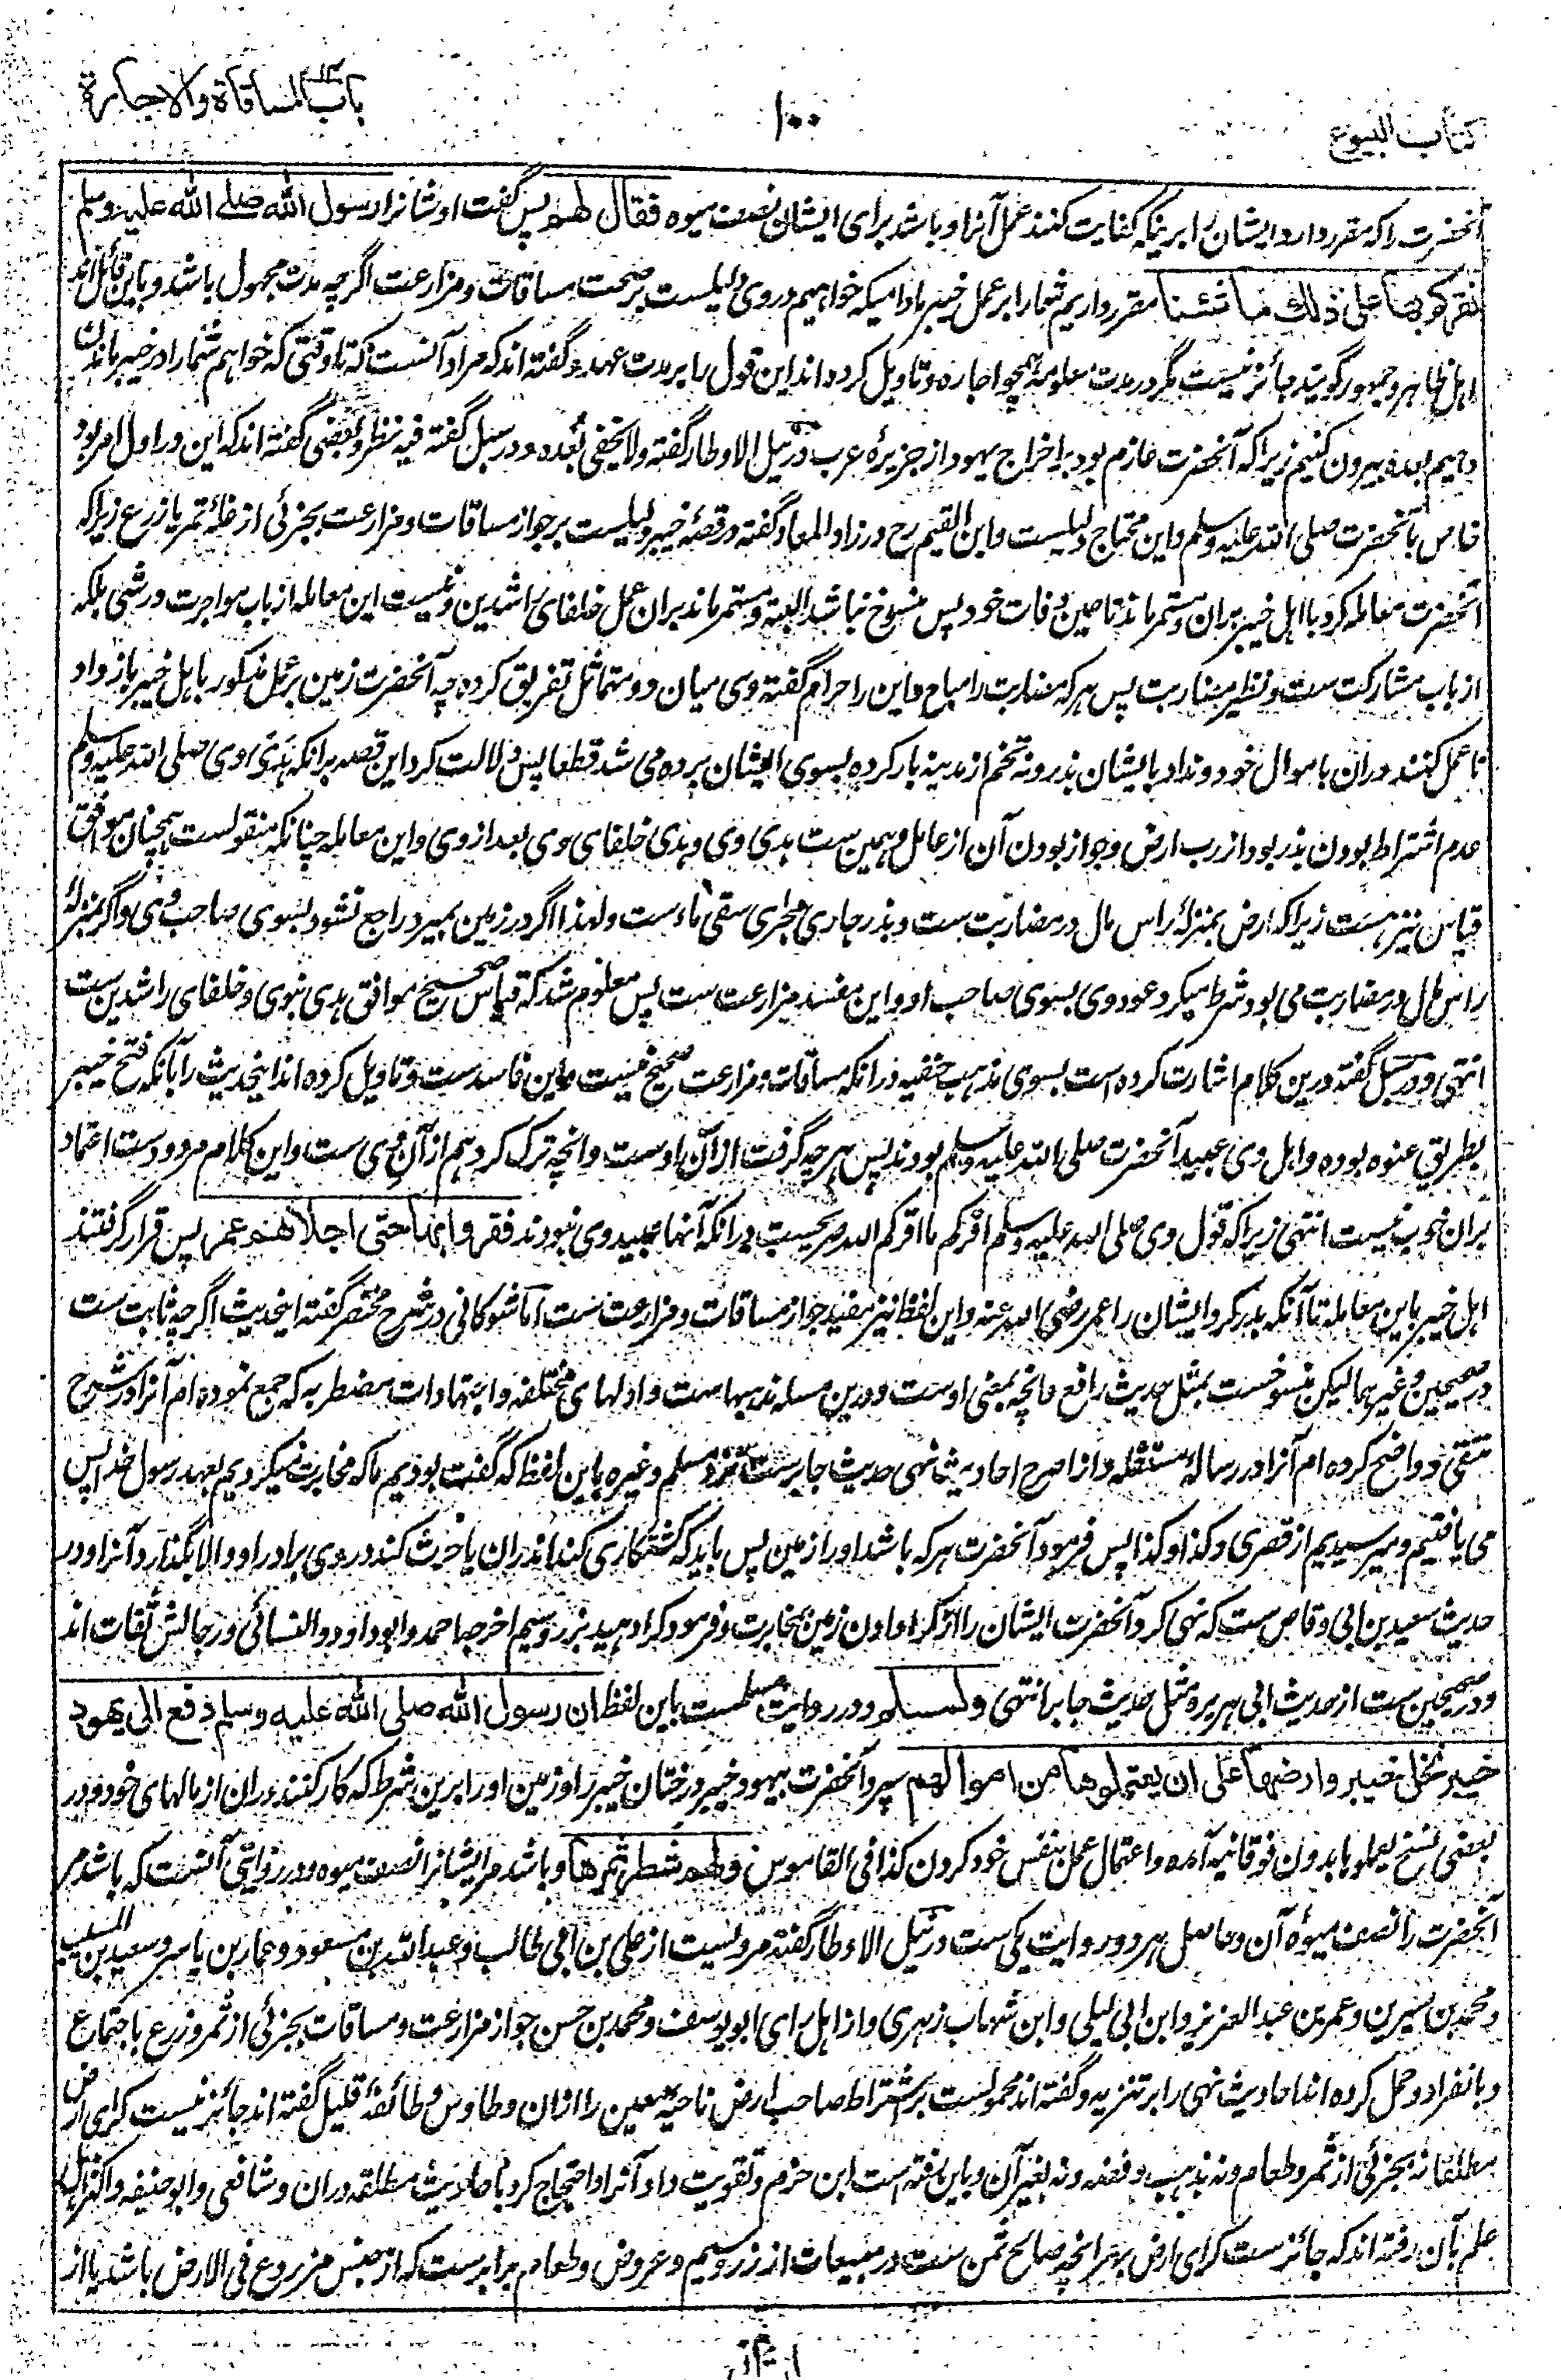 کتاب البیوع
۱۰۰
باب المساقاة والاجارة
آنحضرت را که مقرر دارد ایشان را برینکه کفایت کنند عمل آنرا و باشد برای ایشان نصف میوه فقال لهم پس گفت اوشانرا رسول الله صلے الله علیه وسلم
نقرکم بها علی ذلك ما شئنا مقرر داریم شما را بر عمل خیبر مادامیکه خواهیم در وی دلیلست بر صحت مساقات و مزارعت اگرچه مدت مجهول باشد و باین قائل اند
اهل ظاهر و جمهور گویند جائز نیست مگر در مدت معلومه همچو اجاره و تاویل کرده اند این قول را بر مدت عهد و گفته اند که مراد آنست که تا وقتی که خواهم شما را در خیبر ماندن
دهیم بعده بیرون کنیم زیرا که آنحضرت عازم بود بر اخراج یهود از جزیرهٔ عرب در نیل الاوطار گفته ولا یخفی بعده و در سبل گفته فیه نظر و بعضی گفته اند که این در اول امر بود
خاص بآنحضرت صلی الله علیه وسلم و این محتاج دلیلست و ابن القیم رح در زاد المعاد گفته در قصهٔ خیبر دلیلست بر جواز مساقات و مزارعت بجزئی از غلهٔ تمر یا زرع زیرا که
آنحضرت معامله کرد با اهل خیبر بران و مستمر ماند تا حین وفات خود پس منسوخ نباشد البته و مستمر ماند بران عمل خلفای راشدین و نیست این معامله از باب مواجرت در شئی بلکه
از باب مشارکت ست و نظیر مضاربت پس هر که مضاربت را مباح و این را حرام گفته وی میان دو متماثل تفریق کرده چه آنحضرت زمین بر عمل مذکور باهل خیبر باز داد
تا عمل کنند دران باموال خود و نداد بایشان بذر و نه تخم از مدینه بار کرده بسوی ایشان برده می شد قطعا پس دلالت کرد این قصه برانکه هدی وی صلی الله علیه وسلم
عدم اشتراط بودن بذر بود از رب ارض و جواز بودن آن از عامل و همین ست هدی وی و هدی خلفای وی بعد از وی و این معامله چنانکه منقولست همچنان موافق
قیاس نیز هست زیرا که ارض بمنزلهٔ راس مال در مضاربت ست و بذر جاری مجرای سقی ماء ست ولهذا اگر در زمین بمیرد راجع نشود بسوی صاحب وی و اگر بمنزلهٔ
راس مال در مضاربت می بود شرط میکرد عود وی بسوی صاحب او و این مفسد مزارعت ست پس معلوم شد که قیاس صحیح موافق هدی نبوی و خلفای راشدین ست
انتهی و در سبل گفته درین کلام اشارت کرده است بسوی مذهب حنفیه درانکه مساقات و مزارعت صحیح نیست و این فاسد ست و تاویل کرده اند اینحدیث را بآنکه فتح خیبر
بطریق عنوه بوده و اهل وی عبید آنحضرت صلی الله علیه وسلم بودند پس هر چه گرفت از آن او ست و آنچه ترک کرد هم از آن وی ست و این کلام مردود ست اعتماد
بران خوب نیست انتهی زیرا که قول وی صلی الله علیه وسلم اقرکم ما اقرکم الله صریحست درانکه آنها عبید وی نبودند فقروا بها حتی اجلاهم عمر پس قرار گرفتند
اهل خیبر باین معامله تا آنکه بدر کرد ایشان را عمر رضی الله عنه و این لفظ نیز مفید جواز مساقات و مزارعت ست اما شوکانی در شرح مختصر گفته اینحدیث اگرچه ثابت ست
در صحیحین و غیرهما لیکن منسوخست بمثل حدیث رافع و آنچه بمعنی اوست و درین مساله مذهبهاست و ادلهای مختلفه و اجتهادات مضطربه که جمع نموده ام آنرا در شرح
منتقی و واضح کرده ام آنرا در رسالهٔ مستقله و از اصرح احادیث نهی حدیث جابرست نزد مسلم و غیره باین لفظ که گفت بودیم ما که مخابرت میکردیم بعهد رسول خدا پس
می یافتیم و میرسیدیم از قصری و کذا و کذا پس فرمود آنحضرت هر که باشد او را زمین پس باید که کشتکاری کند اندران یا حرث کند در وی برادر او و الا بگذارد آنرا و در
حدیث سعید بن ابی وقاص ست که نهی کرد آنحضرت ایشان را از کرا دادن زمین بمخابرت و فرمود کرا دهید بزر و سیم اخرجه احمد و ابو داود والنسائی و رجالش ثقات اند
و در صحیحین ست از حدیث ابی هریره مثل حدیث جابر انتهی ولمسلم و در روایت مسلمست باین لفظ ان رسول الله صلی الله علیه وسلم دفع الی یهود
خیبر نخل خیبر وارضها علی ان یعتملوها من اموالهم سپرد آنحضرت بیهود خیبر درختان خیبر را و زمین او را برین شرط که کار کنند دران از مالهای خود و در
بعضی نسخ یعملوها بدون فوقانیه آمده و اعتمال عمل بنفس خود کردن کذا فی القاموس ولهم شطر ثمرها و باشد مر ایشانرا نصف میوه و در روایتی آنست که باشد مر
آنحضرت را نصف میوهٔ آن و حاصل هر دو روایت یکی ست در نیل الاوطار گفته مرویست از علی بن ابی طالب و عبد الله بن مسعود و عمار بن یاسر و سعید بن المسیب
و محمد بن سیرین و عمر بن عبد العزیز و ابن ابی لیلی و ابن شهاب زهری و از اهل رای ابو یوسف و محمد بن حسن جواز مزارعت و مساقات بجزئی از ثمر و زرع باجتماع
و بانفراد و حمل کرده اند احادیث نهی را بر تنزیه و گفته اند محمولست بر اشتراط صاحب ارض ناحیهٔ معین را ازان و طاوس و طائفهٔ قلیل گفته اند جائز نیست کرای ارض
مطلقا نه بجزئی از ثمر و طعام و نه بذهب و فضه و نه بغیر آن و باین رفته است ابن حزم و تقویت داد آنرا و احتجاج کرد باحادیث مطلقه دران و شافعی و ابو حنیفه و اکثر اهل
علم بآن رفته اند که جائزست کرای ارض بهر آنچه صالح ثمن ست در مبیعات از زر و سیم و عروض و طعام برابرست که از جنس مزروع فی الارض باشد یا از